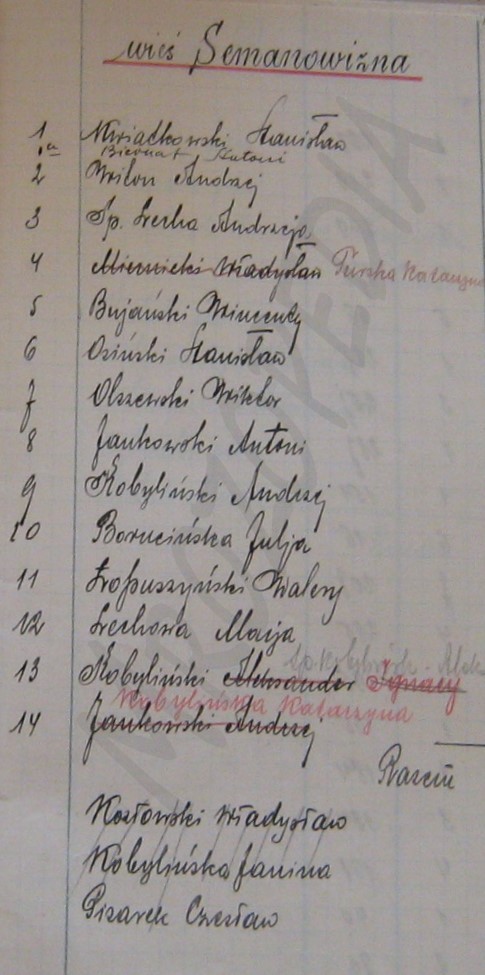 wieś Semanowizna
1 Kwiatkowski Stanisław
1a Biernat Antoni
2 Wilon Andrzej
3 Sp. Lecha Andrzeja
4 Miernicki Władysław Turska Katarzyna
5 Bujański Wincenty
6 Osiński Stanisław
7 Olszewski Wiktor
8 Jankowski Antoni
9 Kobyliński Andrzej
10 Borucińska Julja
11 Łropuszyński Walery
12 Lechowa Marja
13 Kobyliński Aleksander Ignacy
Kobylińska Katarzyna
14 Jankowski Andrzej
Razem
Kozłowski Władysław
Kobylińska Janina
Pisarek Czesław